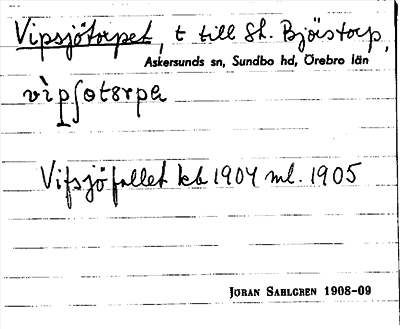 Vipsjötorpet, t till St. Björstorp,
Askersunds sn, Sundbo hd, Örebro län
Vifsjöfallet kb 1904 ml. 1905
Jöran Sahlgren 1908-09